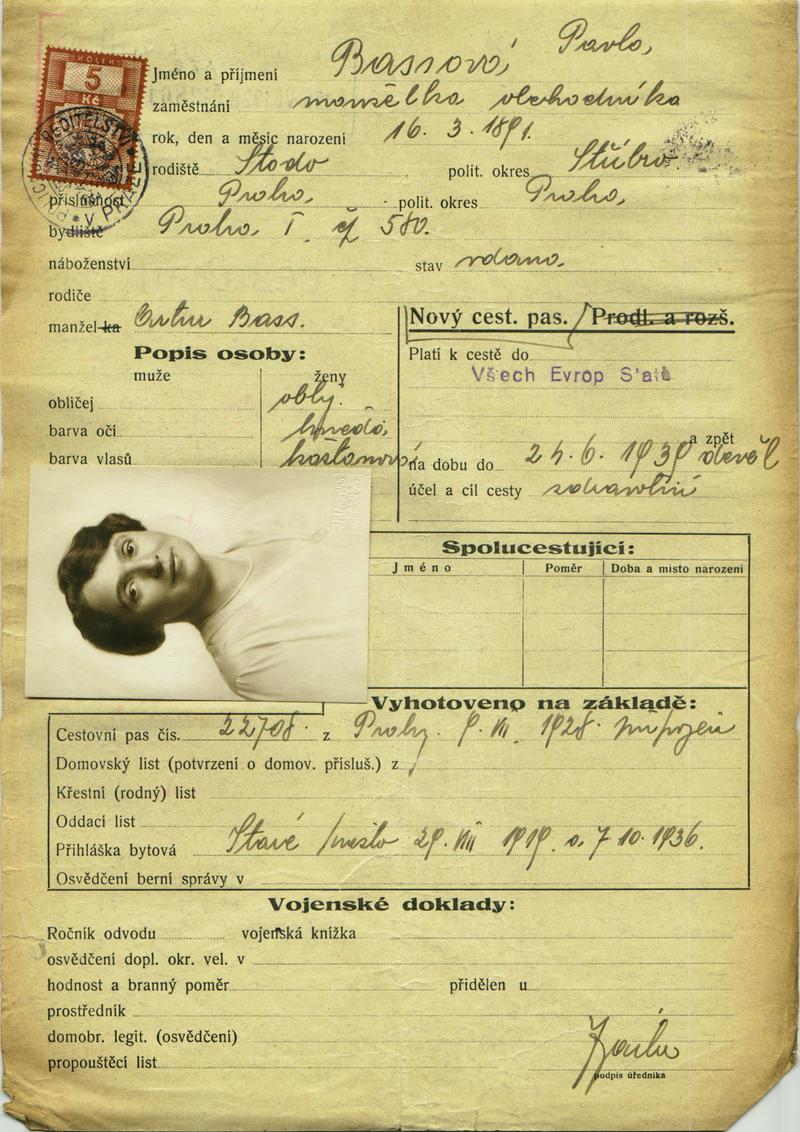 KOLEK
5
Kč
ŘEDITELSTVÍ
V PRAZE
Jméno a příjmení Bassová Pavla,
zaměstnání manželka obchodníka
rok, den a měsíc narození 16. 3. 1891.
rodiště Stodo polit. okres Stříbro
příslušnost Praha, polit. okres Praha,
bydliště Praha I. čp 580.
náboženství stav vdaná.
rodiče
manžel-ka Artur Bass.
Nový cest. pas. / Prodl. a rozš.
Popis osoby:
muže ženy
obličej oblý.
barva očí hnědá,
barva vlasů kaštanová
Platí k cestě do
Všech Evrop S'átů
a zpět
na dobu do 24. 6. 1939
účel a cíl cesty zdravotní
Spolucestující:
Jméno Poměr Doba a místo narození
Vyhotoveno na základě:
Cestovní pas čís. 22708 z Prahy. 1928.
Domovský list (potvrzení o domov. přísluš.) z
Křestní (rodný) list
Oddací list
Přihláška bytová Staré město 29. VIII 1919. a 7. 10. 1936.
Osvědčení berní správy v
Vojenské doklady:
Ročník odvodu vojenská knížka
osvědčení dopl. okr. vel. v
hodnost a branný poměr přidělen u
prostředník
domobr. legit. (osvědčení)
propouštěcí list
podpis úředníka